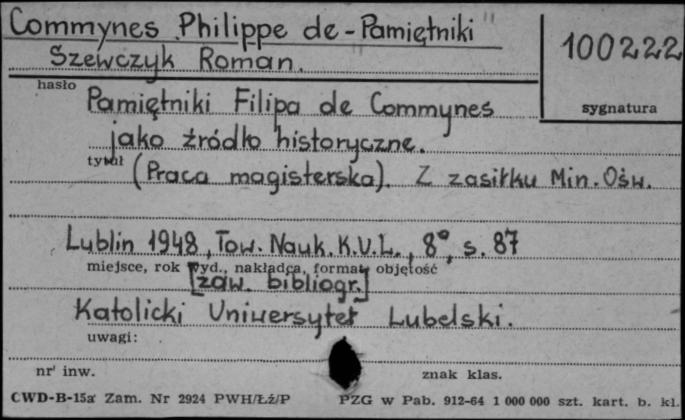 Commynes Philippe de - "Pamiętniki"
Szewczyk Roman.
100222
hasło
sygnatura
Pamiętniki Filipa de Commynes
jako źródło historyczne.
tytuł
(Praca magisterska). Z zasiłku Min. Ośw.
Lublin 1948, Tow. Nauk. K.U.L., 8°, s. 87
miejsce, rok wyd., nakładca, format, objętość
[zaw. bibliogr.]
Katolicki Uniwersytet Lubelski.
uwagi:
nr inw.
znak klas.
CWD-B-15a Zam. Nr 2924 PWH/Łź/P
PZG w Pab. 912-64 1 000 000 szt. kart. b. kl.